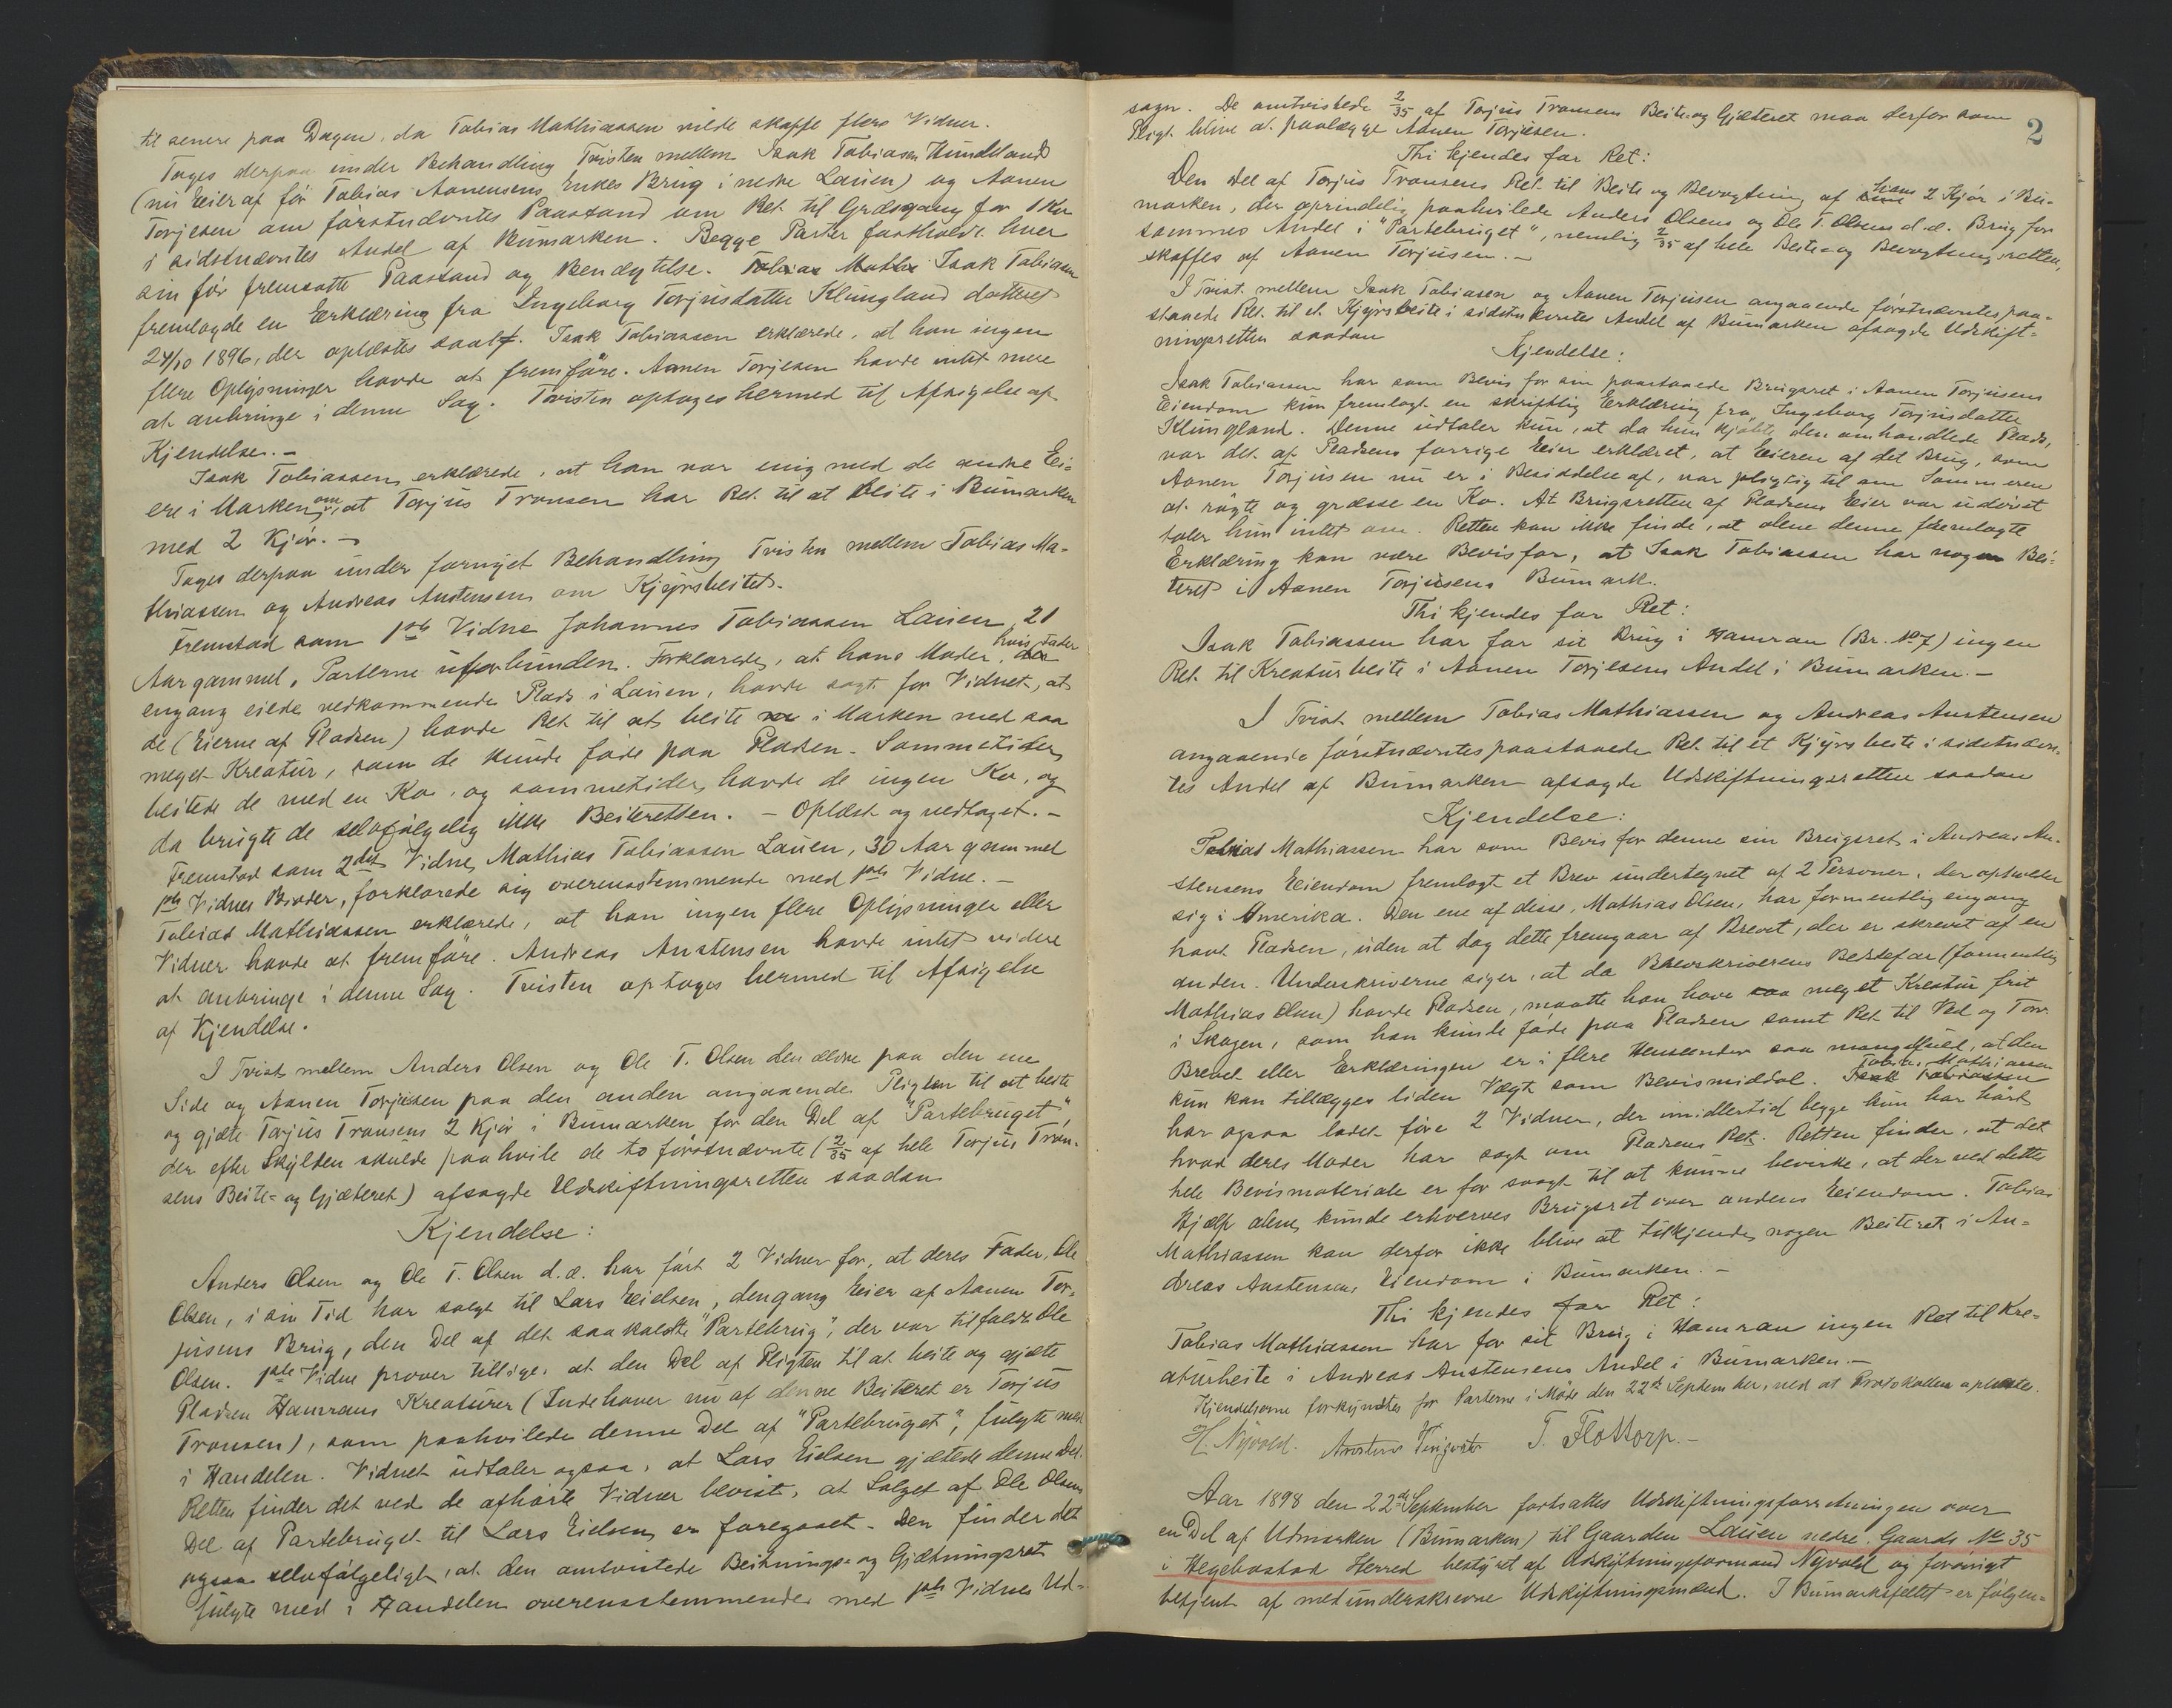 til senere paa Dagen, da Tobias Mathiassen vilde skaffe flere Vidner.
Toges derpaa under Behandling Tvisten mellem Isak Tobiasen Hundeland
(nu Eier af før Tobias Aanensens Enkes Brug i nedre Lauen) og Aanen
Torjesen om førstnævntes Paastand om Ret til Græsgang for 1 Ko
i sidstnævntes Andel af Bumarken. Begge Parter fastholdt hver
sin før fremsatte Paastand og Benegtelse. Isak Tobiasen
fremlagde en Erklæring fra Ingeborg Torjusdatter Klungland dateret
24/10 1896, der oplæstes saal. Isak Tobiassen erklærede, at han ingen
flere Oplysninger havde at fremføre. Aanen Torjesen havde intet mere
at anbringe i denne Sag. Tvisten optoges hermed til Afsigelse af
Kjendelse. -
Isak Tobiassen erklærede, at han var enig med de andre Ei=
ere i Marken om, at Torjus Tronsen har Ret til at beite i Bumarken
med 2 Kjør. -
Toges derpaa under fornyet Behandling Tvisten mellem Tobias Ma-
thiassen og Andreas Austensen om Kjyrsbeitet.
Fremstod som 1ste Vidne Johannes Tobiassen Lauen, 21
Aar gammel, Parterne uforbunden. Forklarede, at hans Moder, hvis Fader
engang eiede vedkommende Plads i Lauen, havde sagt for Vidnet, at
de (Eierne af Pladsen) havde Ret til at beite i Marken med saa
meget Kreatur, som de kunde føde paa Pladsen. Sommetider
beitede de med en Ko, og sommetider havde de ingen Ko, og
da brugte de selvfølgelig ikke Beiteretten. - Oplæst og vedtaget. -
Fremstod som 2det Vidne Mathias Tobiassen Lauen, 30 Aar gammel
1ste Vidnes Broder, forklarede sig overensstemmende med 1ste Vidne. -
Tobias Mathiassen erklærede, at han ingen flere Oplysninger eller
Vidner havde at fremføre. Andreas Austensen havde intet videre
at anbringe i denne Sag. Tvisten optoges hermed til Afsigelse
af Kjendelse.
I Tvist mellem Anders Olsen og Ole T. Olsen den ældre paa den ene
Side og Aanen Torjusen paa den anden angaaende Pligten til at beite
og gjæte Torjus Tronsens 2 Kjør i Bumarken for den Del af "Partebruget",
der efter Skylden skulde paahvile de to førstnævnte (2/35 af hele Torjus Tron-
sens Beite= og Gjæteret) afsagde Udskiftningsretten saadan
Kjendelse:
Anders Olsen og Ole T. Olsen d.æ. har ført 2 Vidner for, at deres Fader, Ole
Olsen, i sin Tid har solgt til Lars Eielsen, dengang Eier af Aanen Tor-
jusens Brug, den Del af det saakaldte "Partebrug", der var tilfaldt Ole
Olsen. 1ste Vidne prover tillige, at den Del af Pligten til at beite og gjæte
Pladsen Hamrans Kreaturer (Indehaver nu af denne Beiteret er Torjus
Tronsen), som paahvilede denne Del af "Partebruget", fulgte med
i Handelen. Vidnet udtaler ogsaa, at Lars Eielsen gjætede denne Del.
Retten finder det ved de afhørte Vidner bevist, at Salget af Ole Olsens
Del af Partebruget til Lars Eielsen er foregaaet. Den finder det
ogsaa selvfølgeligt, at den omtvistede Beitnings= og Gjætningsret
fulgte med i Handelen overensstemmende med 1ste Vidnes Ud=
2
sagn. De omtvistede 2/35 af Torjus Tronsens Beite- og Gjæteret maa derfor som
Pligt blive at paalægge Aanen Torjusen.
Thi kjendes for Ret:
Den Del af Torjus Tronsens Ret til Beite og Bevogtning af hans 2 Kjør i Bu-
marken, der oprindelig paahvilede Anders Olsens og Ole T. Olsens d.æ. Brug for
sammes Andel i "Partebruget", nemlig 2/35 af hele Beite- og Bevogtningsretten,
skaffes af Aanen Torjusen. -
I Tvist mellem Isak Tobiasen og Aanen Torjusen angaaende førstnævntes paa-
staaede Ret til et Kjyrsbeite i sidstnævntes Andel af Bumarken afsagde Udskift=
ningsretten saadan
Kjendelse:
Isak Tobiassen har som Bevis for sin paastaaede Brugsret i Aanen Torjusens
Eiendom kun fremlagt en skriftlig Erklæring fra Ingeborg Torjusdatter
Klungland. Denne udtaler kun, at da hun kjøbte den omhandlede Plads,
var det af Pladsens forrige Eier erklæret, at Eieren af det Brug, som
Aanen Torjusen nu er i Besiddelse af, var pligtig til om Sommeren
at røgte og græsse en Ko. At Brugsretten af Pladsens Eier var udøvet
taler hun intet om. Retten kan ikke finde, at alene denne fremlagte
Erklæring kan være Bevis for, at Isak Tobiassen har nogen Bei=
teret i Aanen Torjusens Bumark.
Thi kjendes for Ret:
Isak Tobiassen har for sit Brug i Hamran (Br. No 7) ingen
Ret til Kreaturbeite i Aanen Torjesens Andel i Bumarken. -
I Tvist mellem Tobias Mathiassen og Andreas Austensen
angaaende førstnævntes paastaaede Ret til et Kjyrsbeite i sidstnævn-
tes Andel af Bumarken afsagde Udskiftningsretten saadan
Kjendelse:
Tobias Mathiassen har som Bevis for denne sin Brugsret i Andreas Au-
stensens Eiendom fremlagt et Brev undertegnet af 2 Personer, der opholder
sig i Amerika. Den ene af disse, Mathias Olsen, har formentlig engang
havt Pladsen, uden at dog dette fremgaar af Brevet, der er skrevet af en
anden. Underskriverne siger, at da Brevskriverens Bedstefar (formentlig
Mathias Olsen) havde Pladsen, maatte han have saa meget Kreatur frit
i Skogen, som han kunde føde paa Pladsen samt Ret til Ved og Torv.
Brevet eller Erklæringen er i flere Henseender saa mangelfuld, at den
kun kan tillægges liden Vægt som Bevismiddel. Isak Tobiassen Tobias Mathiassen
har ogsaa ladet føre 2 Vidner, der imidlertid begge kun har hørt
hvad deres Moder har sagt om Pladsens Ret. Retten finder, at det
hele Bevismateriale er for svagt til at kunne bevirke, at der ved dettes
Hjælp alene kunde erhverves Brugsret over andens Eiendom. Tobias
Mathiassen kan derfor ikke blive at tilkjende nogen Beiteret i An=
dreas Austensens Eiendom i Bumarken. -
Thi kjendes for Ret:
Tobias Mathiassen har for sit Brug i Hamran ingen Ret til Kre=
aturbeite i Andreas Austensens Andel i Bumarken. -
Kjendelserne forkyndtes for Parterne i Møde den 22de September, ved at Protokollen oplæstes.
H. Nyvold. T. Flottorp. -
Aar 1898 den 22de September fortsattes Udskiftningsforretningen over
en Del af Utmarken (Bumarken) til Gaarden Lauen nedre Gaards No 35
i Hegebostad Herred bestyret af Udskiftningsformand Nyvold og forøvrigt
betjent af medunderskrevne Udskiftningsmænd. I Bumarksfeltet er følgen=